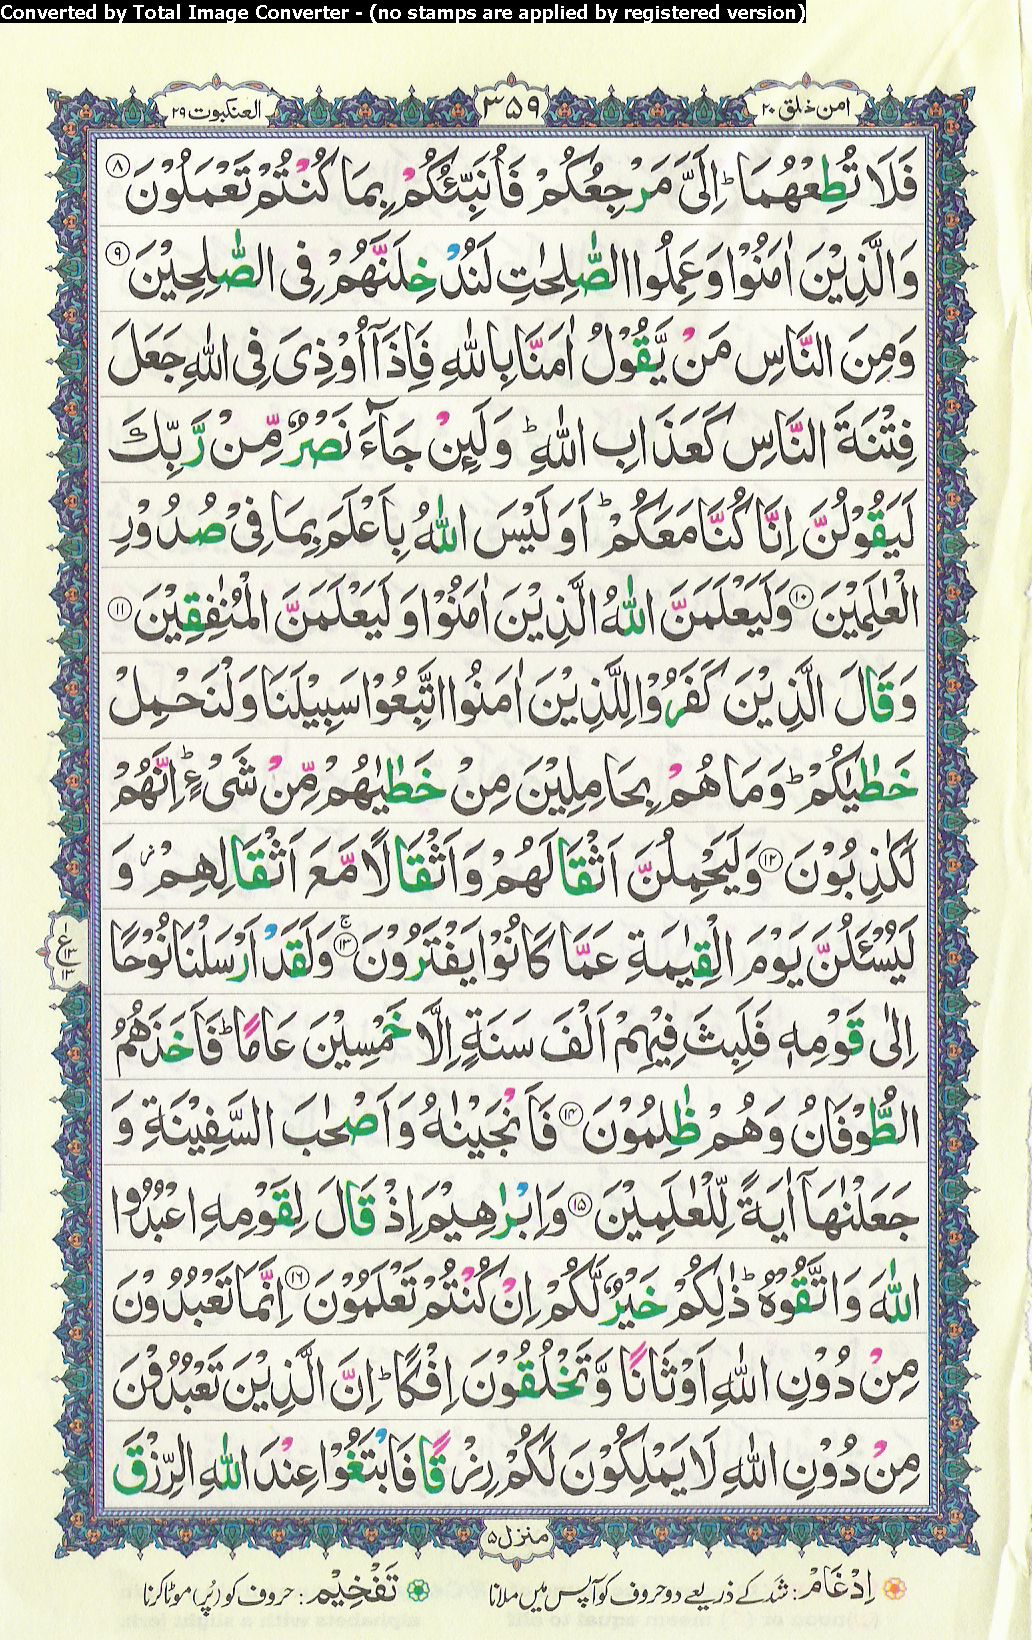 Converted by Total Image Converter - (no stamps are applied by registered version)
امن خلق ۲۰ ۳۵۹ العنکبوت ۲۹
فَلَا تُطِعْهُمَا ؕ اِلَیَّ مَرْجِعُكُمْ فَاُنَبِّئُكُمْ بِمَا كُنْتُمْ تَعْمَلُوْنَ ۸
وَالَّذِیْنَ اٰمَنُوْا وَعَمِلُوا الصّٰلِحٰتِ لَنُدْخِلَنَّهُمْ فِی الصّٰلِحِیْنَ ۹
وَمِنَ النَّاسِ مَنْ یَّقُوْلُ اٰمَنَّا بِاللّٰهِ فَاِذَاۤ اُوْذِیَ فِی اللّٰهِ جَعَلَ
فِتْنَةَ النَّاسِ كَعَذَابِ اللّٰهِ ؕ وَلَئِنْ جَآءَ نَصْرٌ مِّنْ رَّبِّكَ
لَیَقُوْلُنَّ اِنَّا كُنَّا مَعَكُمْ ؕ اَوَلَیْسَ اللّٰهُ بِاَعْلَمَ بِمَا فِیْ صُدُوْرِ
الْعٰلَمِیْنَ ۱۰ وَلَیَعْلَمَنَّ اللّٰهُ الَّذِیْنَ اٰمَنُوْا وَلَیَعْلَمَنَّ الْمُنٰفِقِیْنَ ۱۱
وَقَالَ الَّذِیْنَ كَفَرُوْا لِلَّذِیْنَ اٰمَنُوا اتَّبِعُوْا سَبِیْلَنَا وَلْنَحْمِلْ
خَطٰیٰكُمْ ؕ وَمَا هُمْ بِحَامِلِیْنَ مِنْ خَطٰیٰهُمْ مِّنْ شَیْءٍ ؕ اِنَّهُمْ
لَكٰذِبُوْنَ ۱۲ وَلَیَحْمِلُنَّ اَثْقَالَهُمْ وَاَثْقَالًا مَّعَ اَثْقَالِهِمْ ؗ وَ
لَیُسْـَٔلُنَّ یَوْمَ الْقِیٰمَةِ عَمَّا كَانُوْا یَفْتَرُوْنَ ۱۳ۚ وَلَقَدْ اَرْسَلْنَا نُوْحًا
ع ۱ ۱۳ ۱۳
اِلٰی قَوْمِهٖ فَلَبِثَ فِیْهِمْ اَلْفَ سَنَةٍ اِلَّا خَمْسِیْنَ عَامًا ؕ فَاَخَذَهُمُ
الطُّوْفَانُ وَهُمْ ظٰلِمُوْنَ ۱۴ فَاَنْجَیْنٰهُ وَاَصْحٰبَ السَّفِیْنَةِ وَ
جَعَلْنٰهَاۤ اٰیَةً لِّلْعٰلَمِیْنَ ۱۵ وَاِبْرٰهِیْمَ اِذْ قَالَ لِقَوْمِهِ اعْبُدُوا
اللّٰهَ وَاتَّقُوْهُ ؕ ذٰلِكُمْ خَیْرٌ لَّكُمْ اِنْ كُنْتُمْ تَعْلَمُوْنَ ۱۶ اِنَّمَا تَعْبُدُوْنَ
مِنْ دُوْنِ اللّٰهِ اَوْثَانًا وَّتَخْلُقُوْنَ اِفْكًا ؕ اِنَّ الَّذِیْنَ تَعْبُدُوْنَ
مِنْ دُوْنِ اللّٰهِ لَا یَمْلِكُوْنَ لَكُمْ رِزْقًا فَابْتَغُوْا عِنْدَ اللّٰهِ الرِّزْقَ
منزل ۵
اِدْغَام: شد کے ذریعے دو حروف کو آپس میں ملانا تَفْخِیْم: حروف کو (پُر) موٹا کرنا